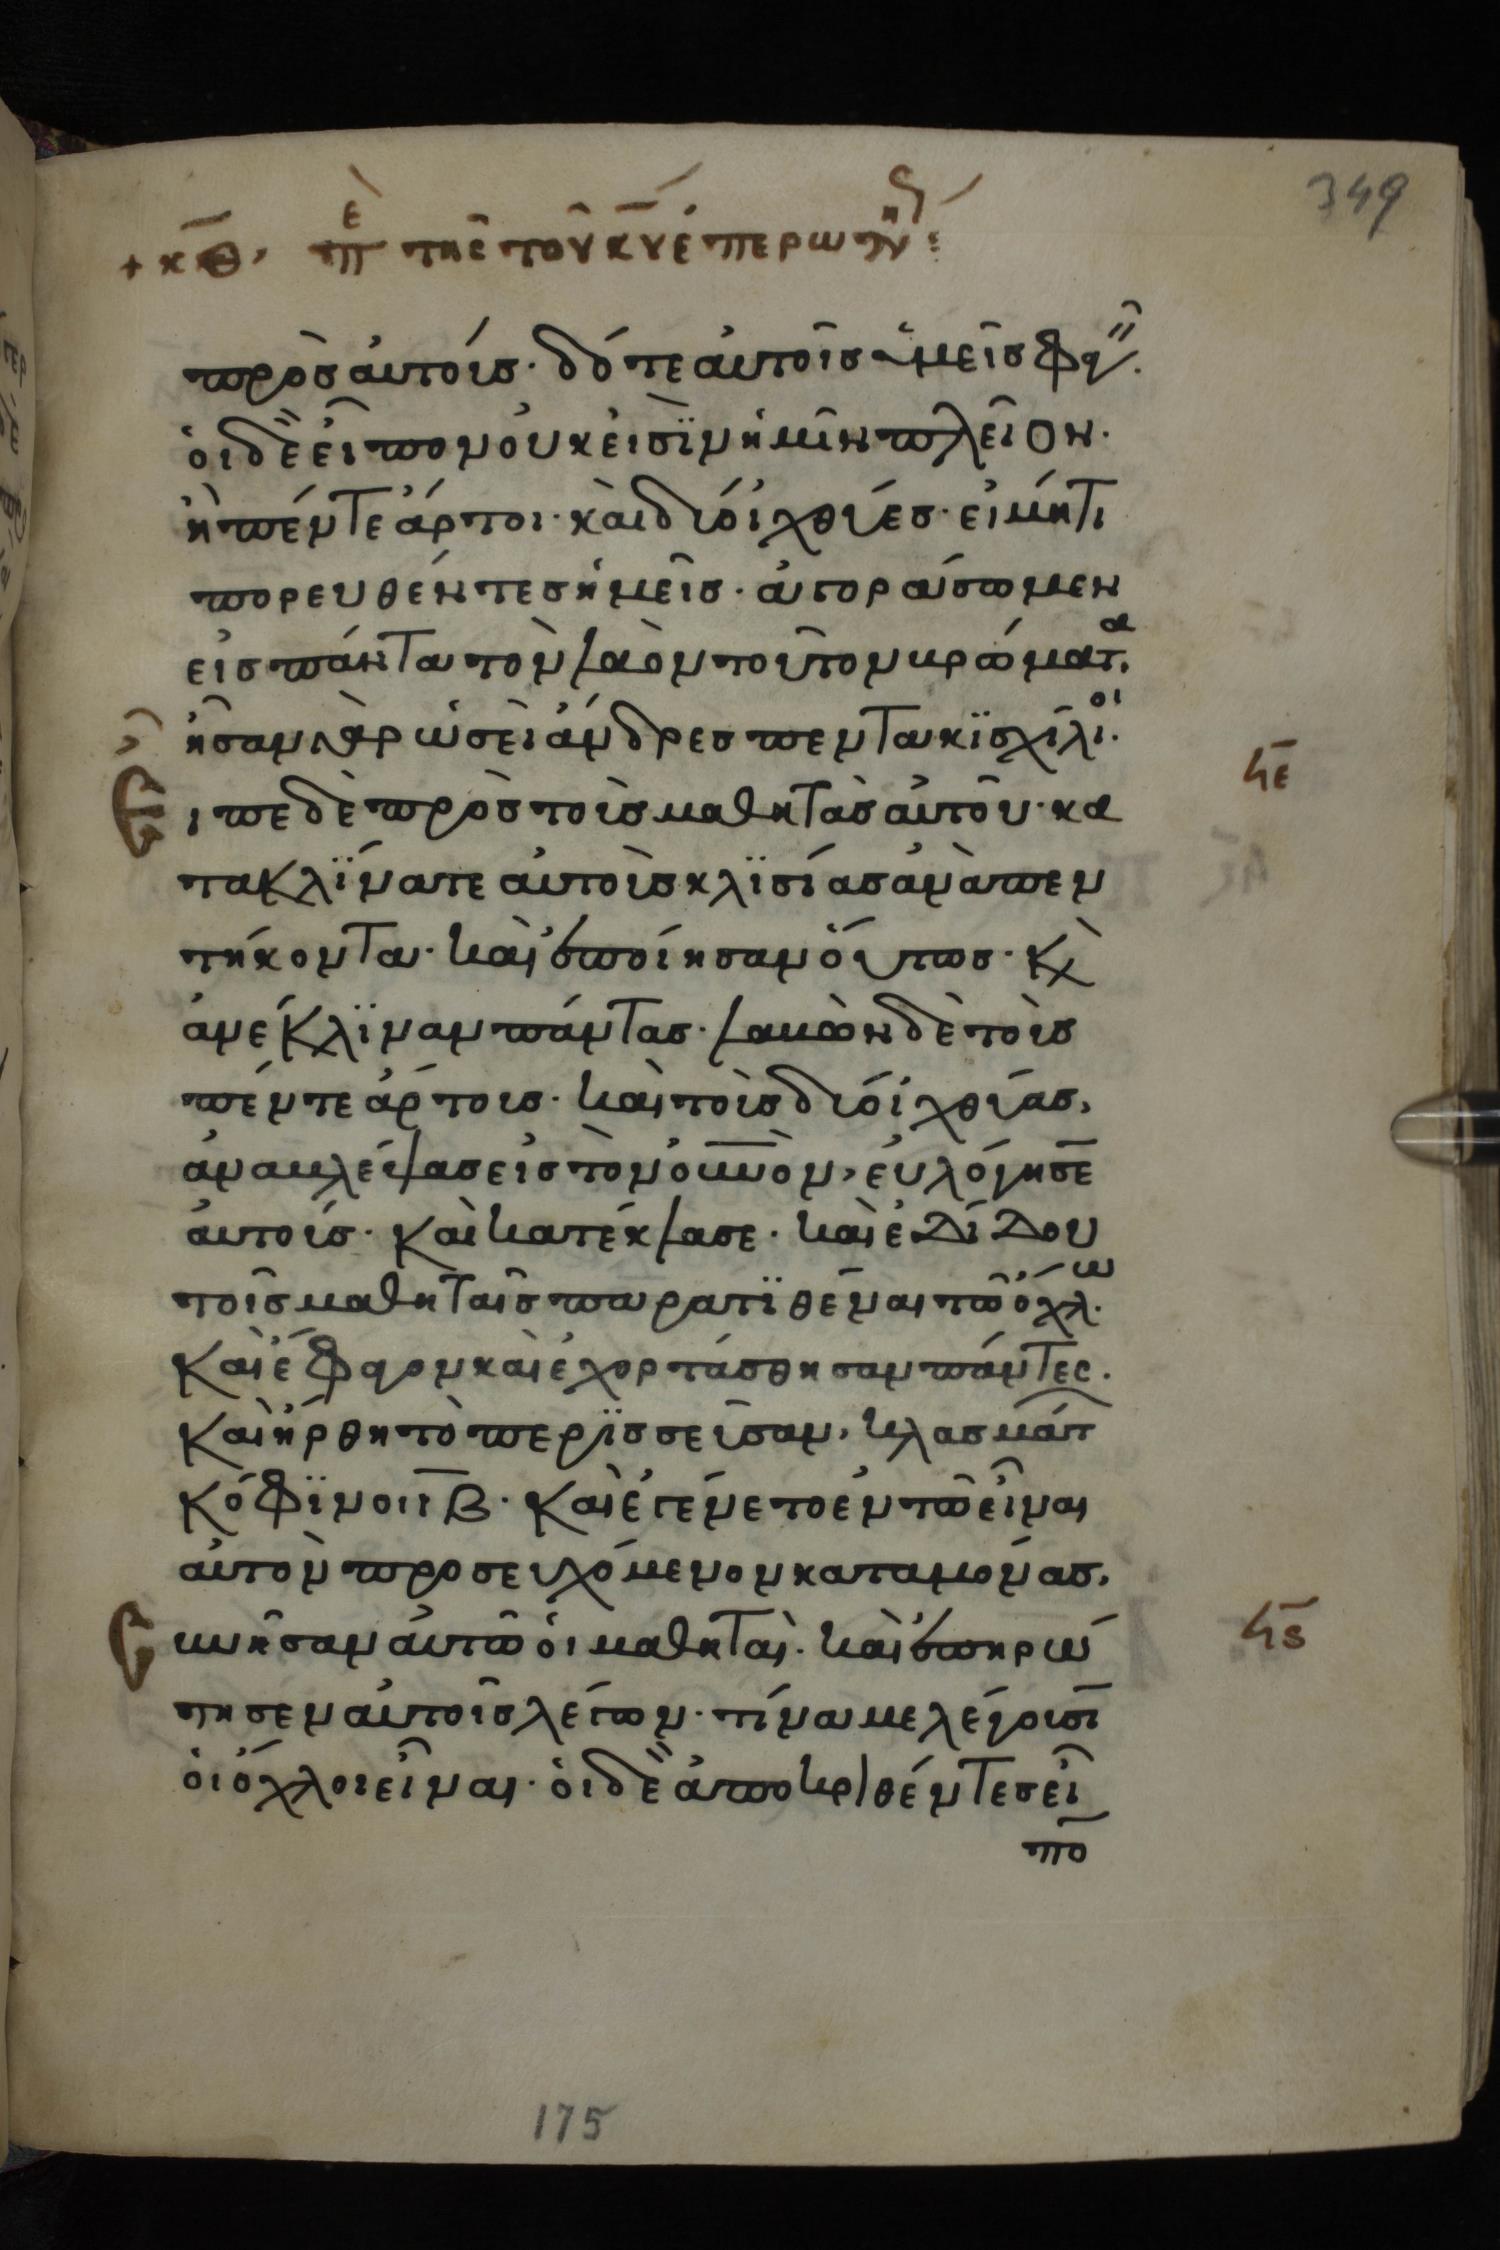 349
+ κθ· ἐπὶ τῆς τοῦ κ̅υ̅ ἐπερωτήσεως:
πρὸς αὐτούς· δότε αὐτοῖς ὑμεῖς φαγεῖν·
οἱ δὲ εἶπον οὐκ εἰσὶν ἡμῖν πλεῖον·
ἢ πέντε ἄρτοι· καὶ δύο ἰχθύες· εἰ μήτι
πορευθέντες ἡμεῖς· ἀγοράσωμεν
εἰς πάντα τὸν λαὸν τοῦτον βρώματα·
ἦσαν γὰρ ὡσεὶ ἄνδρες πεντακϊσχίλιοι·
Εἶπε δὲ πρὸς τοὺς μαθητὰς αὐτοῦ· κα
ϟε
τακλΐνατε αὐτοὺς κλϊσίας ἀνὰ πεν
τήκοντα· καὶ ἐποίησαν οὕτως· κ(αὶ)
ἀνέκλϊναν πάντας· λαβὼν δὲ τοὺς
πέντε ἄρτους· καὶ τοὺς δύο ἰχθύας,
ἀναβλέψας εἰς τὸν ο̅υ̅ν̅ο̅ν, εὐλόγησε
αὐτούς· καὶ κατέκλασε· καὶ ἐδίδου
τοῖς μαθηταῖς παρατϊθέναι τῶ ὄχλω·
καὶ ἔφαγον καὶ ἐχορτάσθησαν πάντες·
καὶ ἤρθη τὸ περϊσσεῦσαν, κλασμάτ
κόφϊνοι ι̅β̅· καὶ ἐγένετο ἐν τῶ εἶναι
αὐτὸν προσευχόμενον καταμόνας,
συνῆσαν αὐτῶ οἱ μαθηταὶ· καὶ ἐπηρώ
ϟς
τησεν αὐτοὺς λέγων· τίνα με λέγουσϊ
οἱ ὄχλοι εἶναι· οἱ δὲ ἀποκριθέντες εἶ
πο̅
175